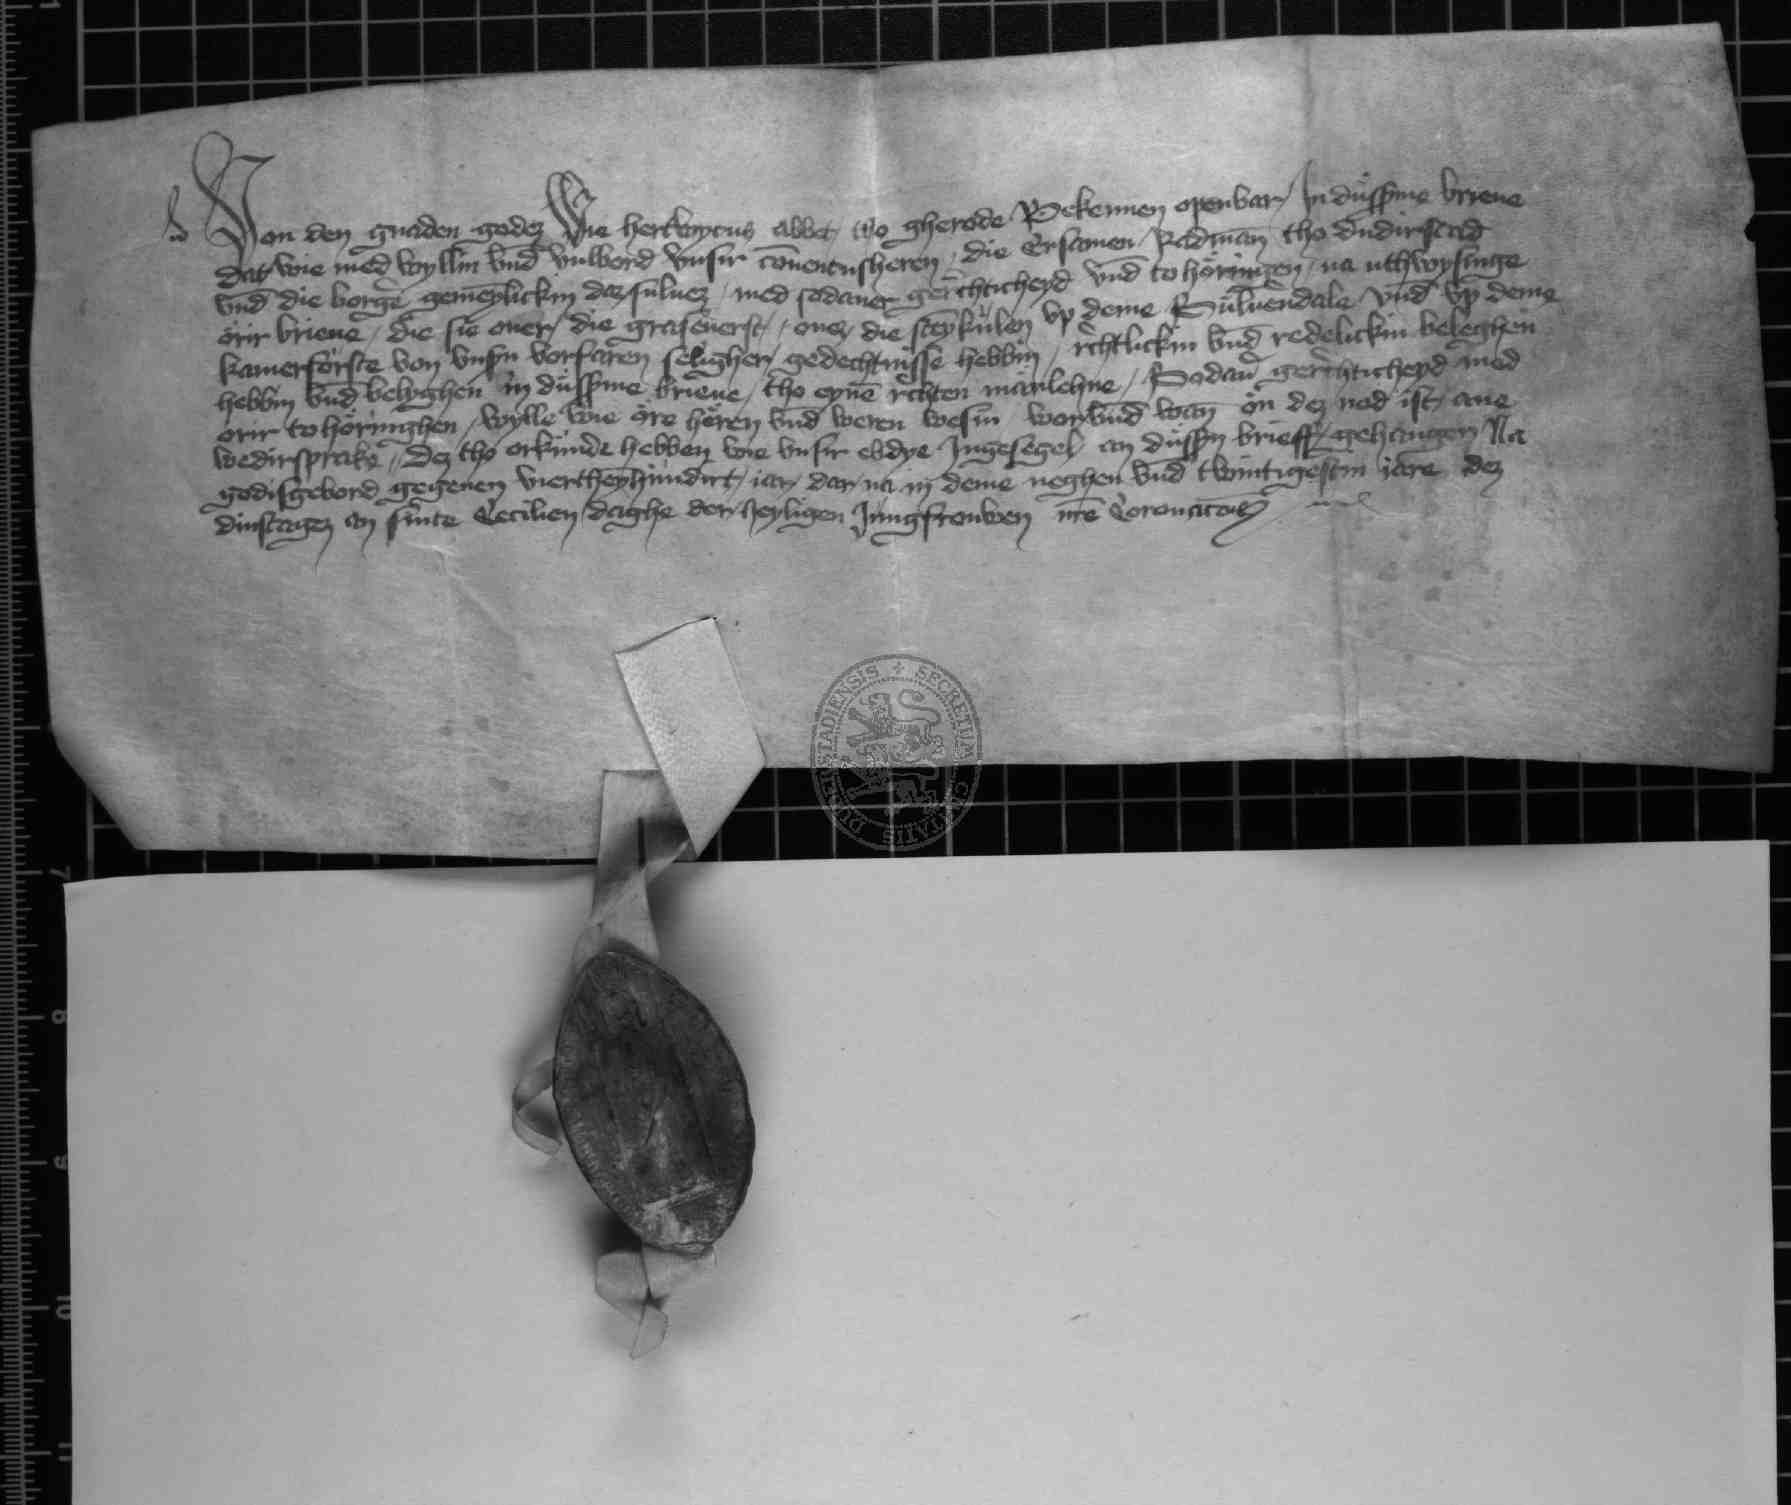 Von den gnaden godeȥ Wie hertwycus abbet tvo gherode Bekennen openbar / In dússme brieue
dat wie med wyllin vnd vulbord vnsir co̅uentusheren / die Ersamen Radman̅ tho dudirstad
vnd die borgẻ geme̅ylickin daȥ suluez / med sodaner gerẻchticheyd vnd to hȯringen / na uthwysinge
ȯrir brieue / die sie ouer die grasẻuerst / ouer die steykůlen vp deme Sůluẻndale vnd vp deme
kamerfȯrste von vnsṅ vorfaren seligher gedechtnisse hebbin / rẻchtlickin vnd redelickin beleghen
hebbin vnd belyghen in dússme brieue / tho eyne̅ rẻchten manlehne / Sodan̉ gerẻchticheyd med
orir to hȯringhen / wylle wie ȯre hẻren vnd weren wesin / wor vnd wan̅ ȯn deȥ nod ist / ane
wedirsprake / Deȥ tho orkunde hebben wie vnsir ebdye Ingesegel an dússṅ brieff / gehangen Na
godisgebord gegeuen vierthey̅hundirt iar / dar na in deme neghen vnd twintigestin iare deȥ
dinstageȥ an sinte Cecilien daghe der heyligen Jungfrouwen